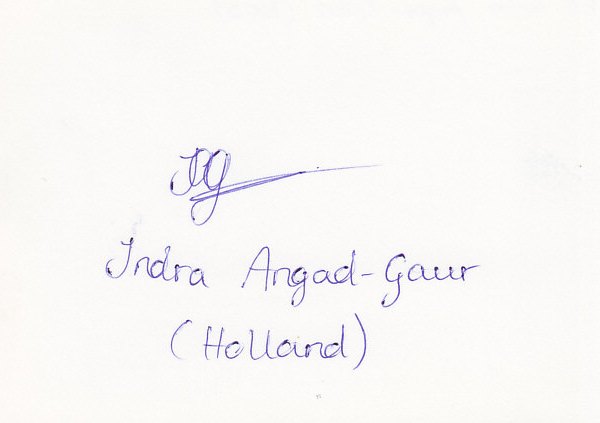 Indra Angad-Gaur
(Holland)